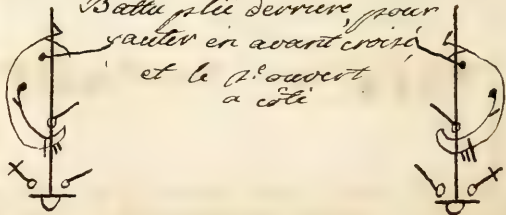 Battu plié derriere, pour
sauter en avant croisé
et le p.^e ouvert
a côté